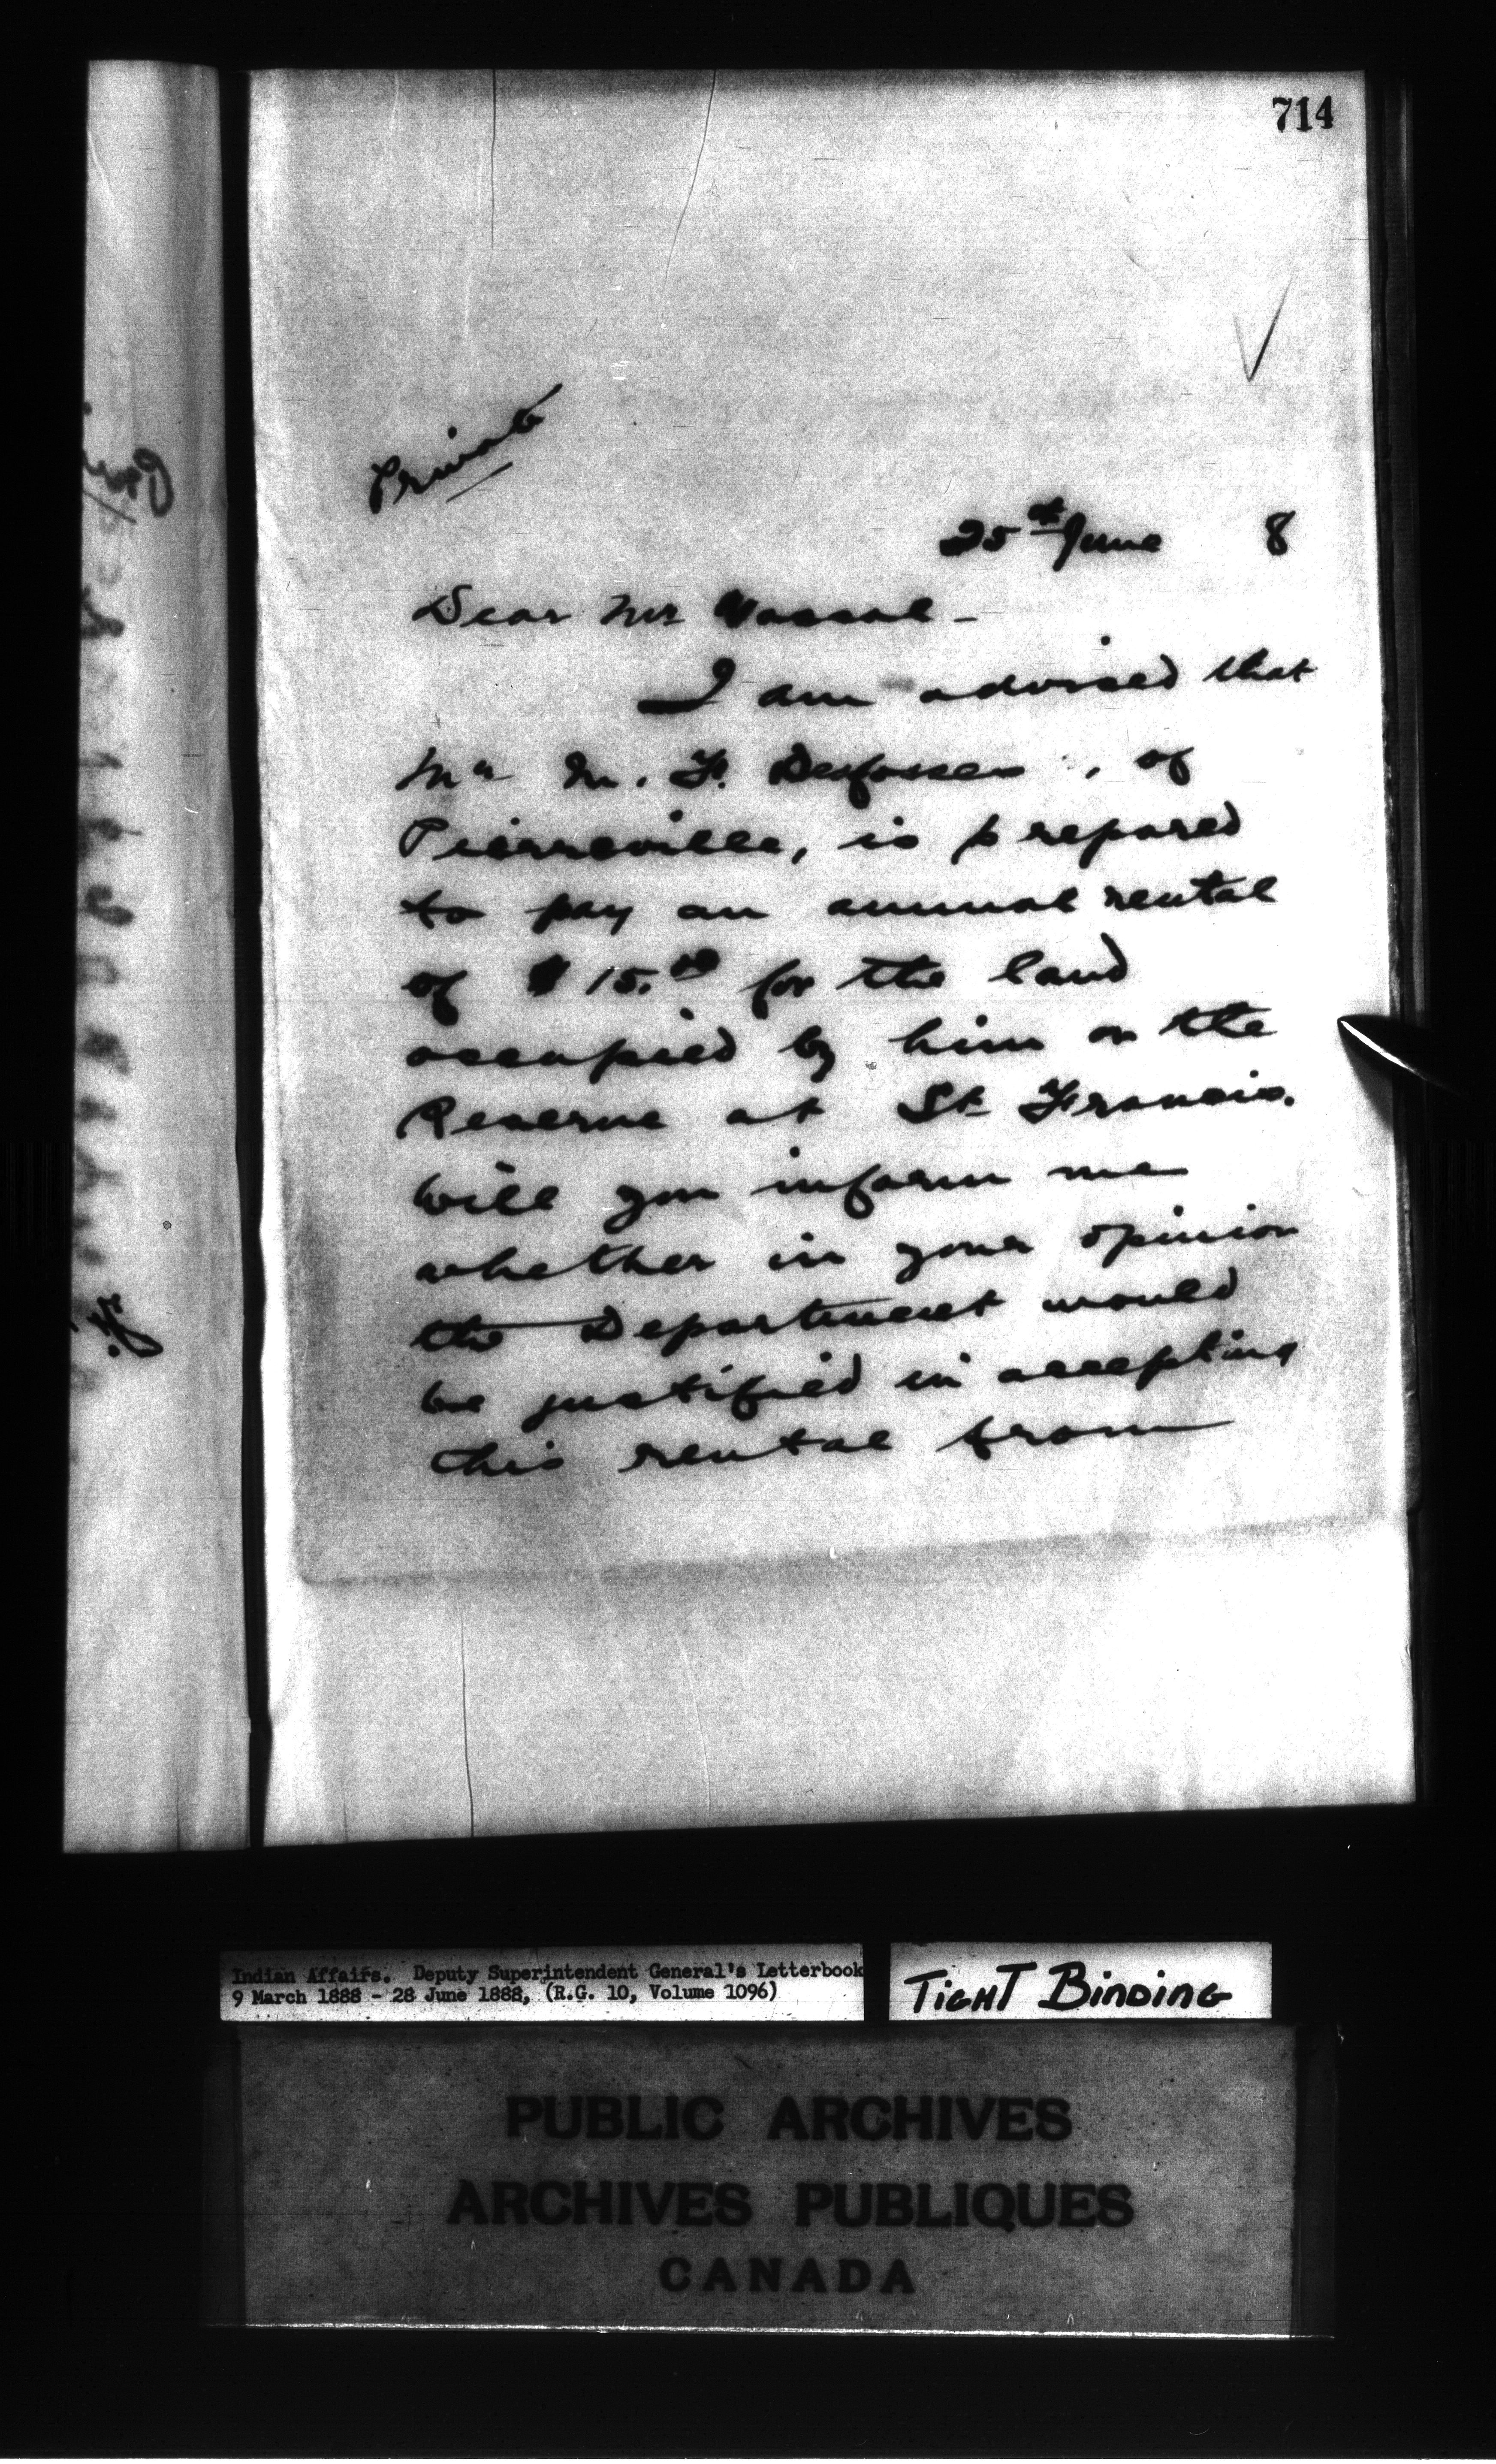 714
Private
25th June 8
Dear Mr Vassal -
I am advised that
Mr M. F. Desfosses, of
Pierreville, is prepared
to pay an annual rental
of $15.00 for the land
occupied by him on the
Reserve at St Francis.
Will you inform me
whether in your opinion
the Department would
be justified in accepting
this rental from
Indian Affairs. Deputy Superintendent General's Letterbook
9 March 1888 - 28 June 1888, (R.G. 10, Volume 1096)
TIGHT BINDING
PUBLIC ARCHIVES
ARCHIVES PUBLIQUES
CANADA